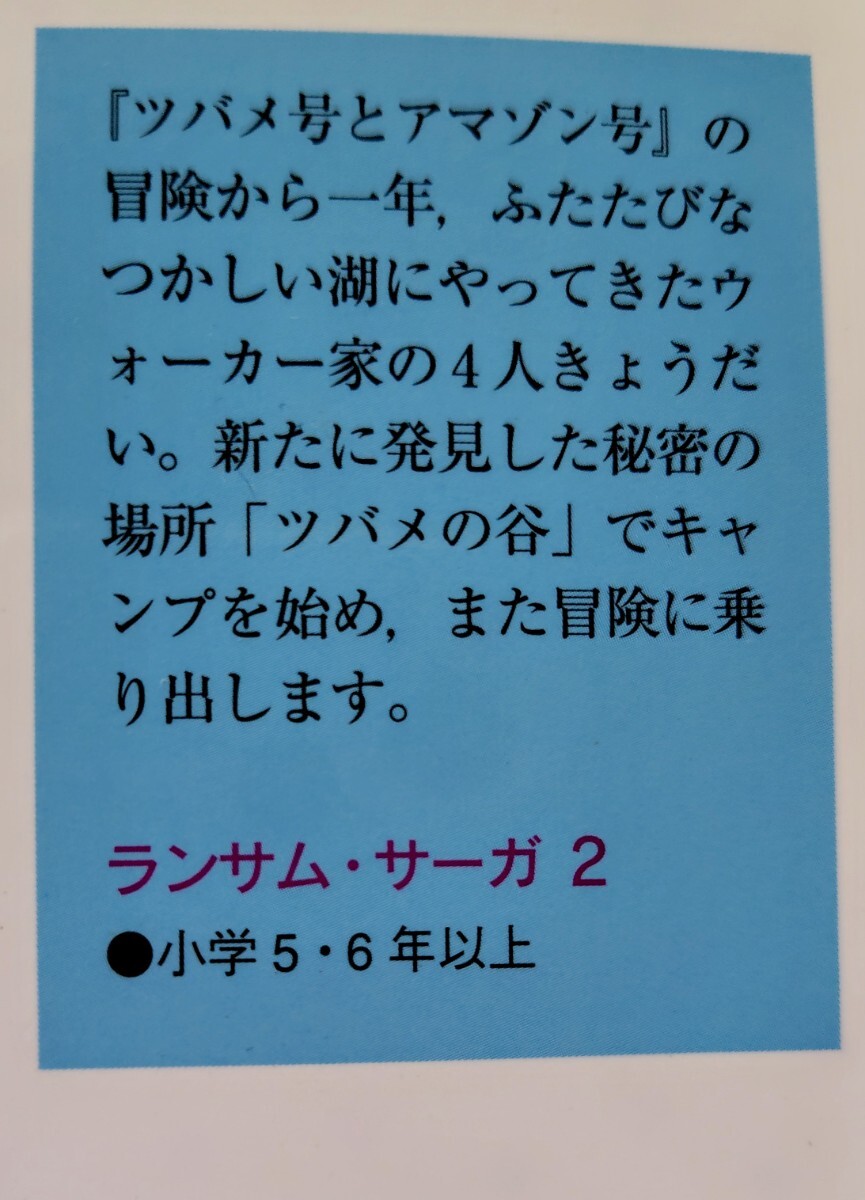 『ツバメ号とアマゾン号』の
冒険から一年，ふたたびな
つかしい湖にやってきたウ
ォーカー家の4人きょうだ
い。新たに発見した秘密の
場所「ツバメの谷」でキャ
ンプを始め，また冒険に乗
り出します。
ランサム・サーガ 2
●小学5・6年以上